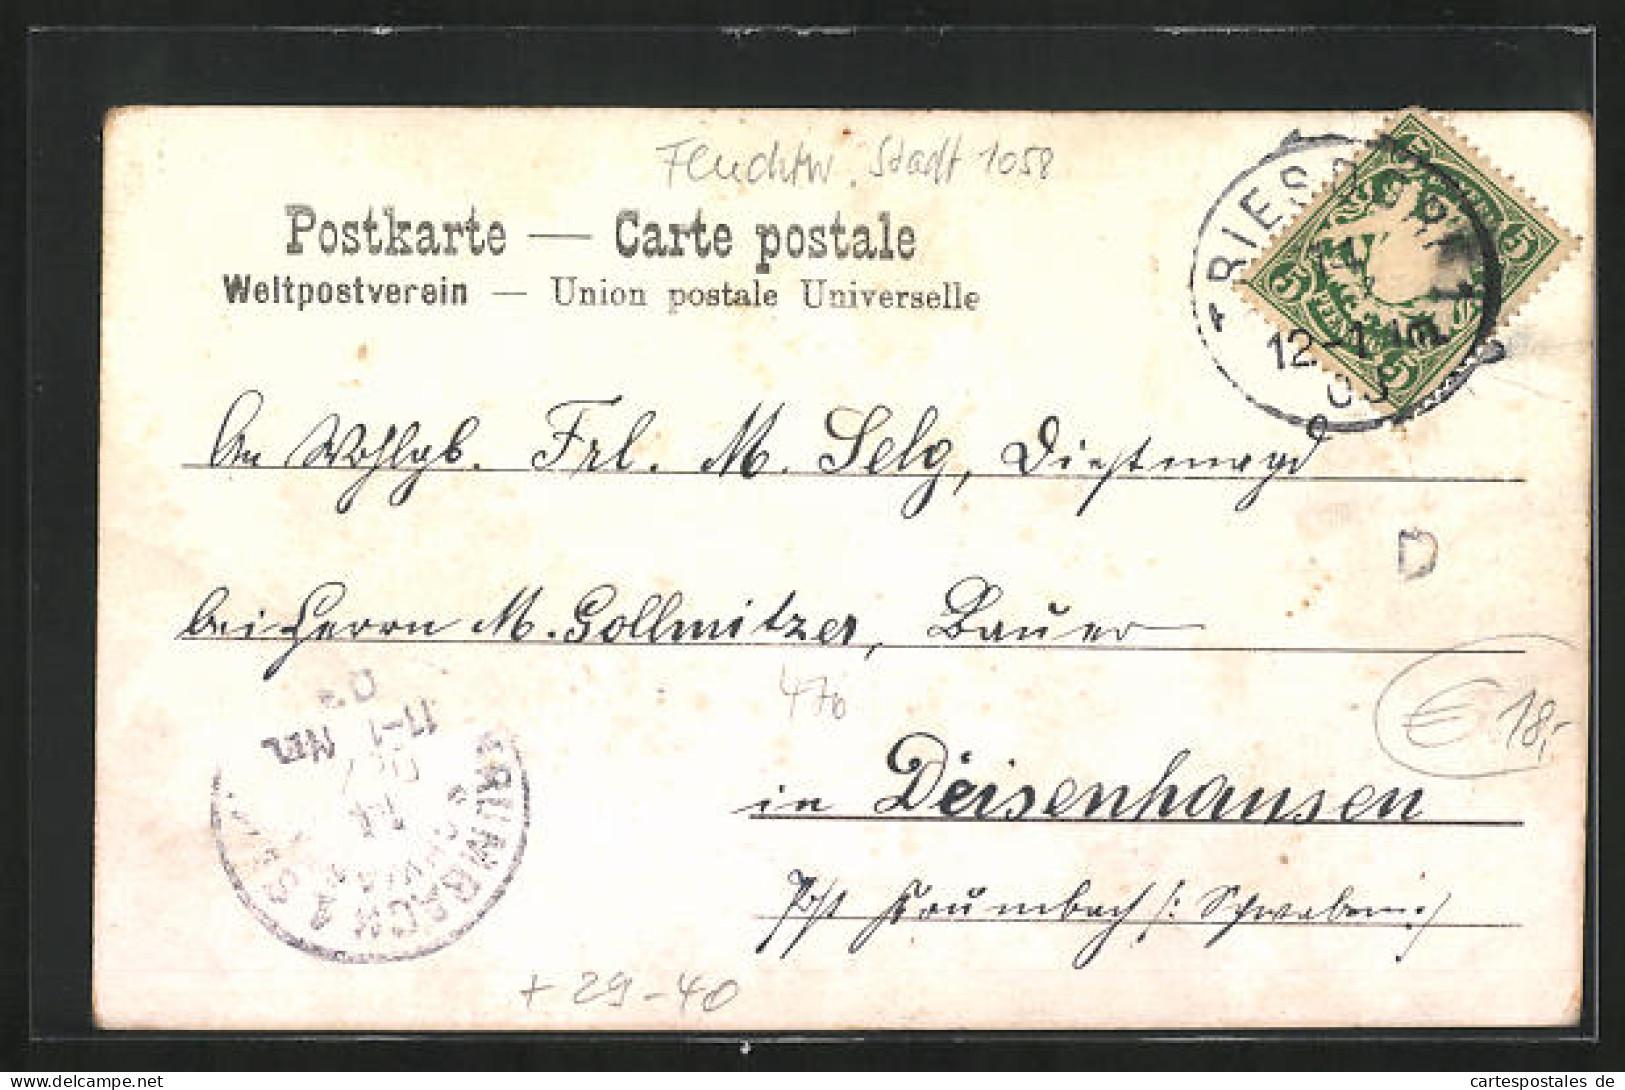 Feuchtw. Stadt 1058
Postkarte — Carte postale
Weltpostverein — Union postale Universelle
5 5
5 5
12-1 Nm
03
An Wohlgb. Frl. M. Selg, Dienstmagd
D
bei Herrn M. Gollmitzer, Bauer
470
€ 18,-
in Deisenhausen
Post Krumbach /: Schwaben :/
KRUMBACH
+ 29-40
cartespostales de